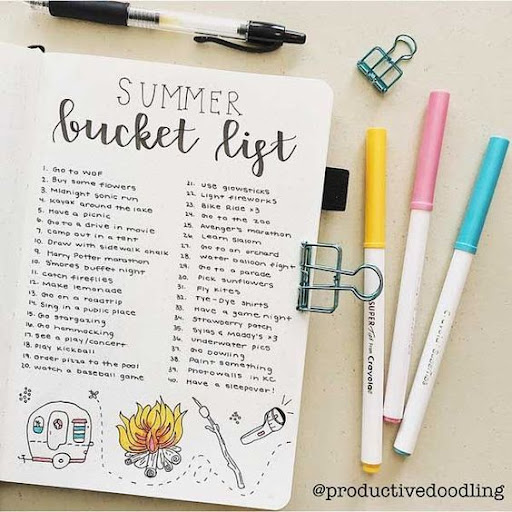 SUMMER
bucket list
1. Go to WOF
2. Buy some flowers
3. Midnight sonic run
4. Kayak around the lake
5. Have a picnic
6. Go to a drive in movie
7. Camp out in a tent
8. Draw with sidewalk chalk
9. Harry Potter marathon
10. S'mores buffet night
11. Catch fireflies
12. Make lemonade
13. Go on a roadtrip
14. Sing in a public place
15. Go stargazing
16. Go hammocking
17. See a play/concert
18. Play kickball
19. Order pizza to the pool
20. Watch a baseball game
21. Use glowsticks
22. Light fireworks
23. Bike Ride x3
24. Go to the zoo
25. Avenger's marathon
26. Learn slalom
27. Go to an orchard
28. Water balloon fight
29. Go to a parade
30. Pick sunflowers
31. Fly kites
32. Tye-Dye shirts
33. Have a game night
34. Strawberry patch
35. Sylas & Maddy's x3
36. Underwater pics
37. Go bowling
38. Paint something
39. Photowalls in KC
40. Have a sleepover!
SUPER Tips from Crayola
@productivedoodling